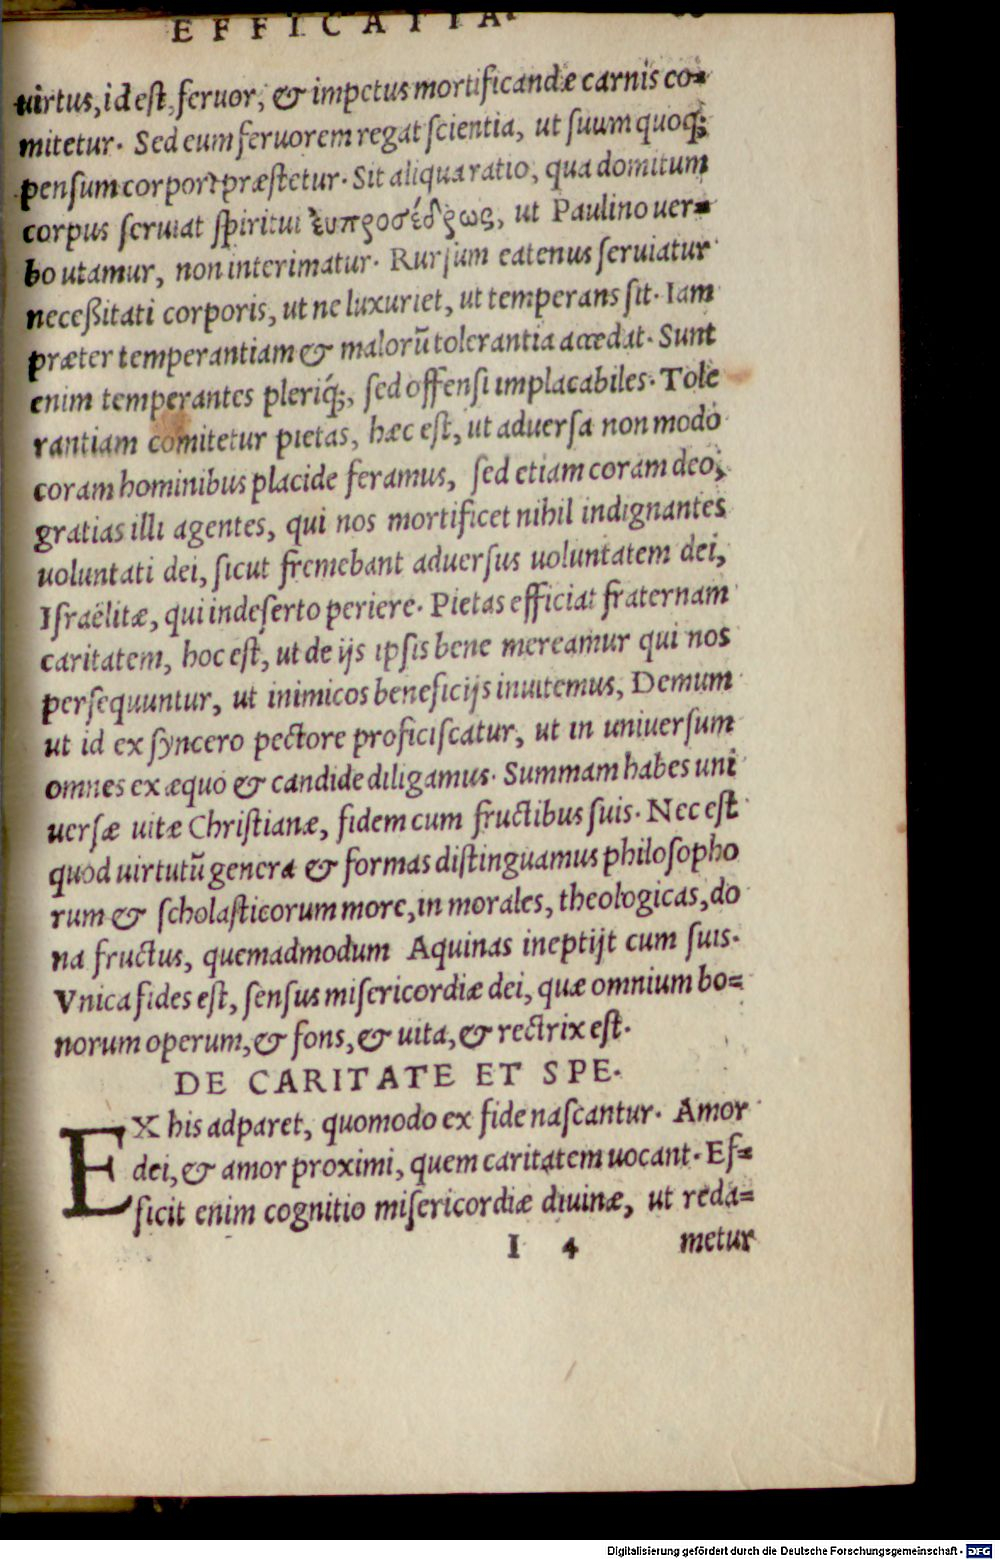 EFFICATIA.
uirtus, id est, feruor, & impetus mortificandæ carnis co=
mitetur. Sed eum feruorem regat scientia, ut suum quoq;
pensum corpori præstetur. Sit aliqua ratio, qua domitum
corpus seruiat spiritui ἐυπροσέδρως, ut Paulino uer=
bo utamur, non interimatur. Rursum eatenus seruiatur
neceßitati corporis, ut ne luxuriet, ut temperans sit. Iam
præter temperantiam & malorũ tolerantia accedat. Sunt
enim temperantes pleriq́;, sed offensi implacabiles. Tole
rantiam comitetur pietas, hæc est, ut aduersa non modo
coram hominibus placide feramus, sed etiam coram deo,
gratias illi agentes, qui nos mortificet nihil indignantes
uoluntati dei, sicut fremebant aduersus uoluntatem dei,
Israëlitæ, qui in deserto periere. Pietas efficiat fraternam
caritatem, hoc est, ut de ijs ipsis bene mereamur qui nos
persequuntur, ut inimicos beneficijs inuitemus, Demum
ut id ex syncero pectore proficiscatur, ut in uniuersum
omnes ex æquo & candide diligamus. Summam habes uni
uersæ uitæ Christianæ, fidem cum fructibus suis. Nec est
quod uirtutũ genera & formas distinguamus philosopho
rum & scholasticorum more, in morales, theologicas, do
na fructus, quemadmodum Aquinas ineptijt cum suis.
Vnica fides est, sensus misericordiæ dei, quæ omnium bo=
norum operum, & fons, & uita, & rectrix est.
DE CARITATE ET SPE.
EX his adparet, quomodo ex fide nascantur. Amor
dei, & amor proximi, quem caritatem uocant. Ef=
ficit enim cognitio misericordiæ diuinæ, ut reda=
I 4 metur
Digitalisierung gefördert durch die Deutsche Forschungsgemeinschaft - DFG